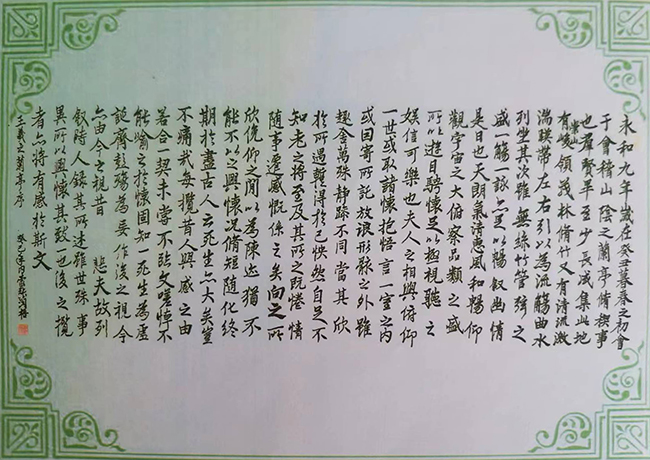 永和九年歲在癸丑暮春之初會
于會稽山陰之蘭亭脩禊事
也羣賢畢至少長咸集此地
有崇山峻領茂林脩竹又有清流激
湍暎帶左右引以為流觴曲水
列坐其次雖無絲竹管弦之
盛一觴一詠亦足以暢叙幽情
是日也天朗氣清惠風和暢仰
觀宇宙之大俯察品類之盛
所以遊目騁懷足以極視聽之
娛信可樂也夫人之相與俯仰
一世或取諸懷抱悟言一室之內
或因寄所託放浪形骸之外雖
趣舍萬殊静躁不同當其欣
於所遇暫得於己怏然自足不
知老之將至及其所之既惓情
隨事遷感慨係之矣向之所
欣俛仰之閒以為陳迹猶不
能不以之興懷況脩短隨化終
期於盡古人云死生亦大矣豈
不痛哉每攬昔人興感之由
若合一契未嘗不臨文嗟悼不
能喻之於懷固知一死生為虛
誕齊彭殤為妄作後之視今
亦由今之視昔 悲夫故列
叙時人錄其所述雖世殊事
異所以興懷其致一也後之攬
者亦將有感於斯文
王羲之蘭亭序 癸巳年